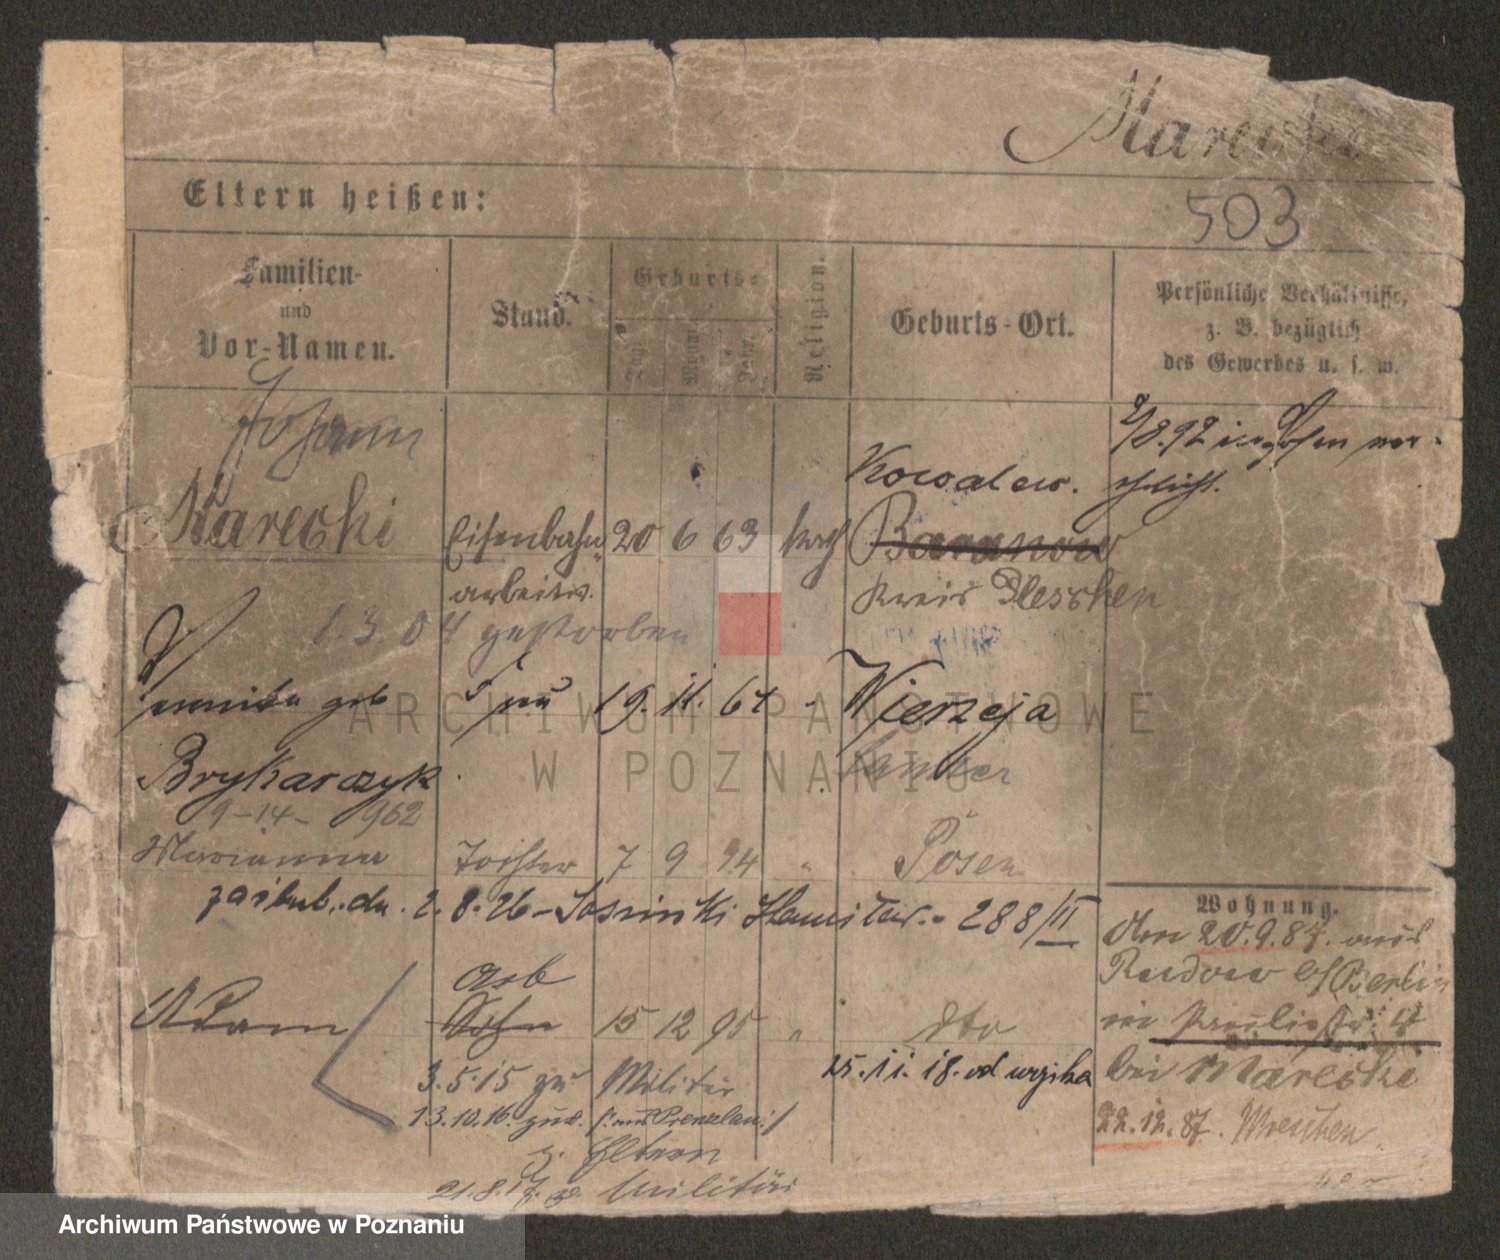 Marecki
503
Eltern heißen:
Familien-
und
Vor-Namen.
Stand.
Geburts-
Tag.
Monat
Jahr.
Religion.
Geburts-Ort.
Persönliche Verhältnisse,
z. B. bezüglich
des Gewerbes u. s. w.
Johann
Marecki
Eisenbahn
arbeiter.
20 6 63 kath
Kowalew.
Baranow
Kreis Pleschen
2/8.92 in Posen ver-
ehelicht.
1. 3. 04 gestorben
geb
Frau 19. 11. 64 Wierzeja
Brykarczyk
Samter
9-14- 962
Marianna Tochter 7 9 94 " Posen
zaślub. dn. 2. 8. 26 - Stanisław - 288/II
Adam
arb
Sohn 15 12 95 " dto
3.5.15 zu Militär
15. 11. 18. od wojska
13.10.16. zur. /: aus Prenzlau :/
z. Eltern
21.8.17 z. Militär
Wohnung.
Am 20.9.87. aus
Rudow b/Berlin
in
bei Marecki
22.12.87. Wreschen
ARCHIWUM PAŃSTWOWE
W POZNANIU
Archiwum Państwowe w Poznaniu